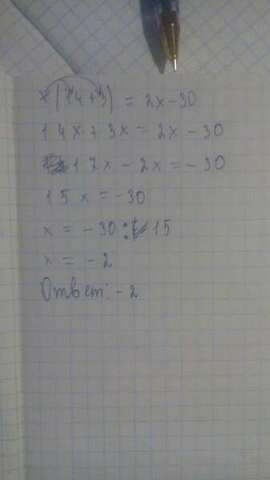 x(14+3) = 2x-30
14x+3x = 2x-30
17x-2x = -30
15x = -30
x = -30:15
x = -2
Ответ: -2